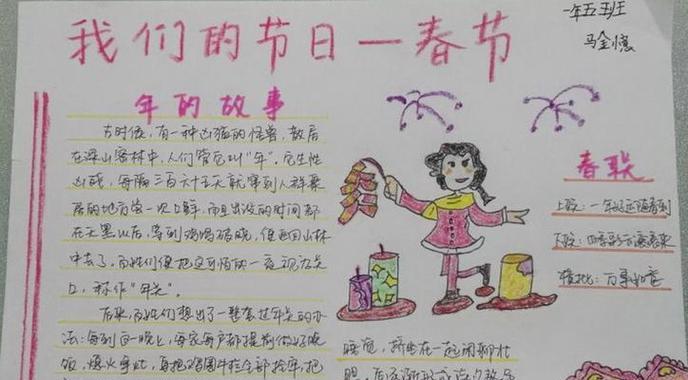 我们的节日—春节
一年五班
马金憶
年的故事
古时候,有一种凶猛的怪兽,散居
在深山密林中,人们管它叫"年"。它生性
凶残,每隔三百六十五天就窜到人群聚
居的地方尝一次口鲜,而且出没的时间都
在天黑以后,等到鸡鸣破晓,便返回山林
中去了,百姓们便把这可怕的一夜视为关
口,称作"年关"。
后来,百姓们想出了一整套过年关的办
法:每到这一晚上,每家每户都提前做好晚
饭,熄火净灶,再把鸡圈牛栏全部拴牢,把
春联
上联:一年好运随春到
下联:四季彩云滚滚来
横批:万事如意
睡觉,挤坐在一起闲聊壮
胆,